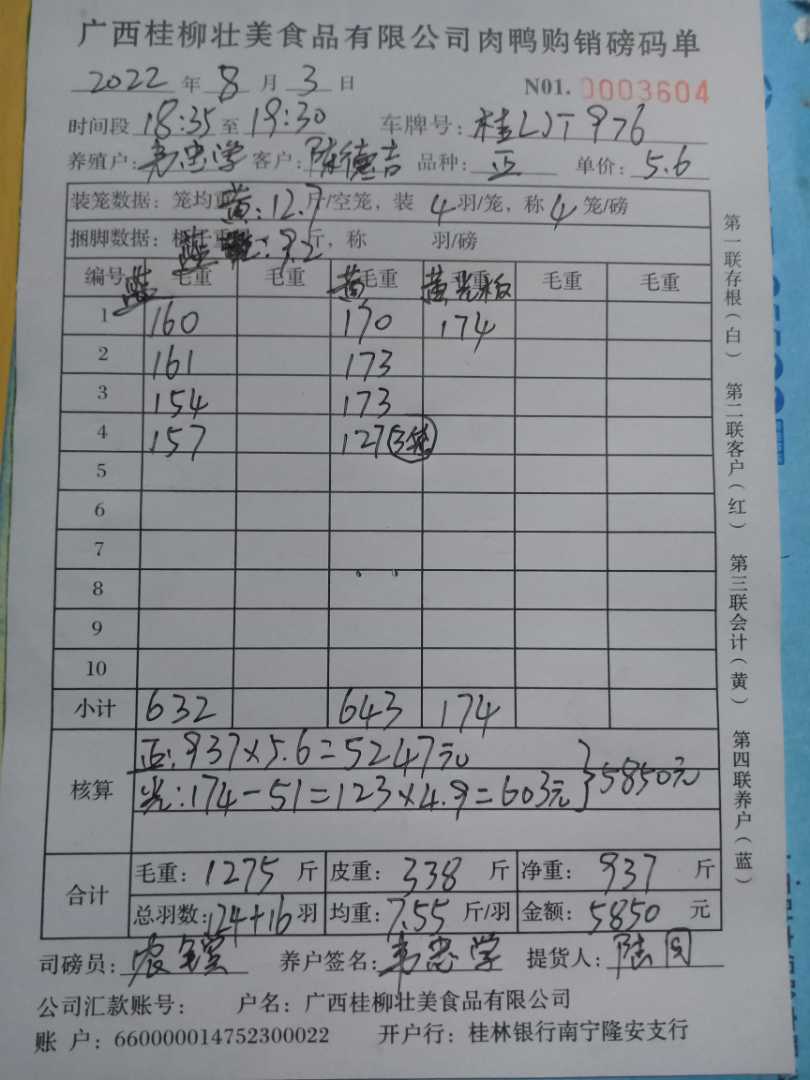 广西桂柳壮美食品有限公司肉鸭购销磅码单
2022 年 8 月 3 日 N01. 0003604
时间段 18:35 至 19:30 车牌号: 桂LJT976
养殖户: 韦忠学 客户: 陈德吉 品种: 正 单价: 5.6
装笼数据: 笼均重 黄: 12.7 斤/空笼, 装 4 羽/笼, 称 4 笼/磅
捆脚数据: 蓝 : 9.2 斤, 称 羽/磅
编号 蓝 毛重 毛重 黄 毛重 黄光板 毛重 毛重 毛重
1 160 170 174
2 161 173
3 154 173
4 157 127 3笼
5
6
7
8
9
10
小计 632 643 174
核算 正: 937×5.6=5247元
光: 174-51=123×4.9=603元 } 5850元
合计 毛重: 1275 斤 皮重: 338 斤 净重: 937 斤
总羽数: 124+16 羽 均重: 7.55 斤/羽 金额: 5850 元
司磅员: 养户签名: 韦忠学 提货人:
公司汇款账号: 户名: 广西桂柳壮美食品有限公司
账 户: 660000014752300022 开户行: 桂林银行南宁隆安支行
第一联存根(白) 第二联客户(红) 第三联会计(黄) 第四联养户(蓝)